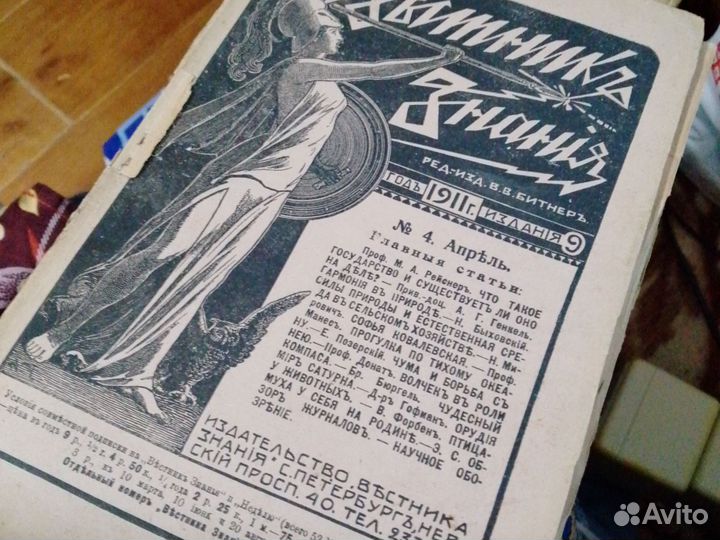 Вѣстникъ
Знанія
РЕД.-ИЗД. В.В. БИТНЕРЪ.
ГОДЪ 1911 г. ИЗДАНІЯ 9
№ 4. Апрѣль.
Главныя статьи:
Проф. М. А. Рейснеръ. ЧТО ТАКОЕ
ГОСУДАРСТВО И СУЩЕСТВУЕТЪ ЛИ ОНО
НА ДѢЛѢ? — Прив.-доц. А. Г. Генкель.
ГАРМОНІЯ ВЪ ПРИРОДѢ.— Н. Быховскій.
СИЛЫ ПРИРОДЫ И ЕСТЕСТВЕННАЯ СРЕ-
ДА ВЪ СЕЛЬСКОМЪ ХОЗЯЙСТВѢ.— Н. Ми-
ровичъ. СОФЬЯ КОВАЛЕВСКАЯ — Проф.
Манес. ПРОГУЛКА ПО ТИХОМУ ОКЕА-
НУ.— Е. Позерскій. ЧУМА И БОРЬБА СЪ
НЕЮ.— Проф. Донатъ. ВОЛЧЕКЪ ВЪ РОЛИ
КОМПАСА.— Бр. Бюргель. ЧУДЕСНЫЙ
МІРЪ САТУРНА.— Д-ръ Гофманъ. ОРУДІЯ
У ЖИВОТНЫХЪ. — В. Форбенъ. ПТИЦА-
МУХА У СЕБЯ НА РОДИНѢ.— Э. С. ОБ-
ЗОР ЖУРНАЛОВЪ. — НАУЧНОЕ ОБО-
ЗРѢНІЕ.
ИЗДАТЕЛЬСТВО „ВѢСТНИКА
ЗНАНІЯ" С.ПЕТЕРБУРГЪ, НЕВ
СКІЙ ПРОСП. 40. ТЕЛ.
Условія совмѣстной подписки на „Вѣстник Знанья" и „Недѣлю" (всего 52
—цѣна въ годъ 9 р., 1/2 г. 4 р. 50 к., 1/4 года 2 р. 25 к., 1 м.—75
3 р., къ 10 марта, 10 іюня и 20 авг
Отдѣльный номеръ „Вѣстника Знан
Avito